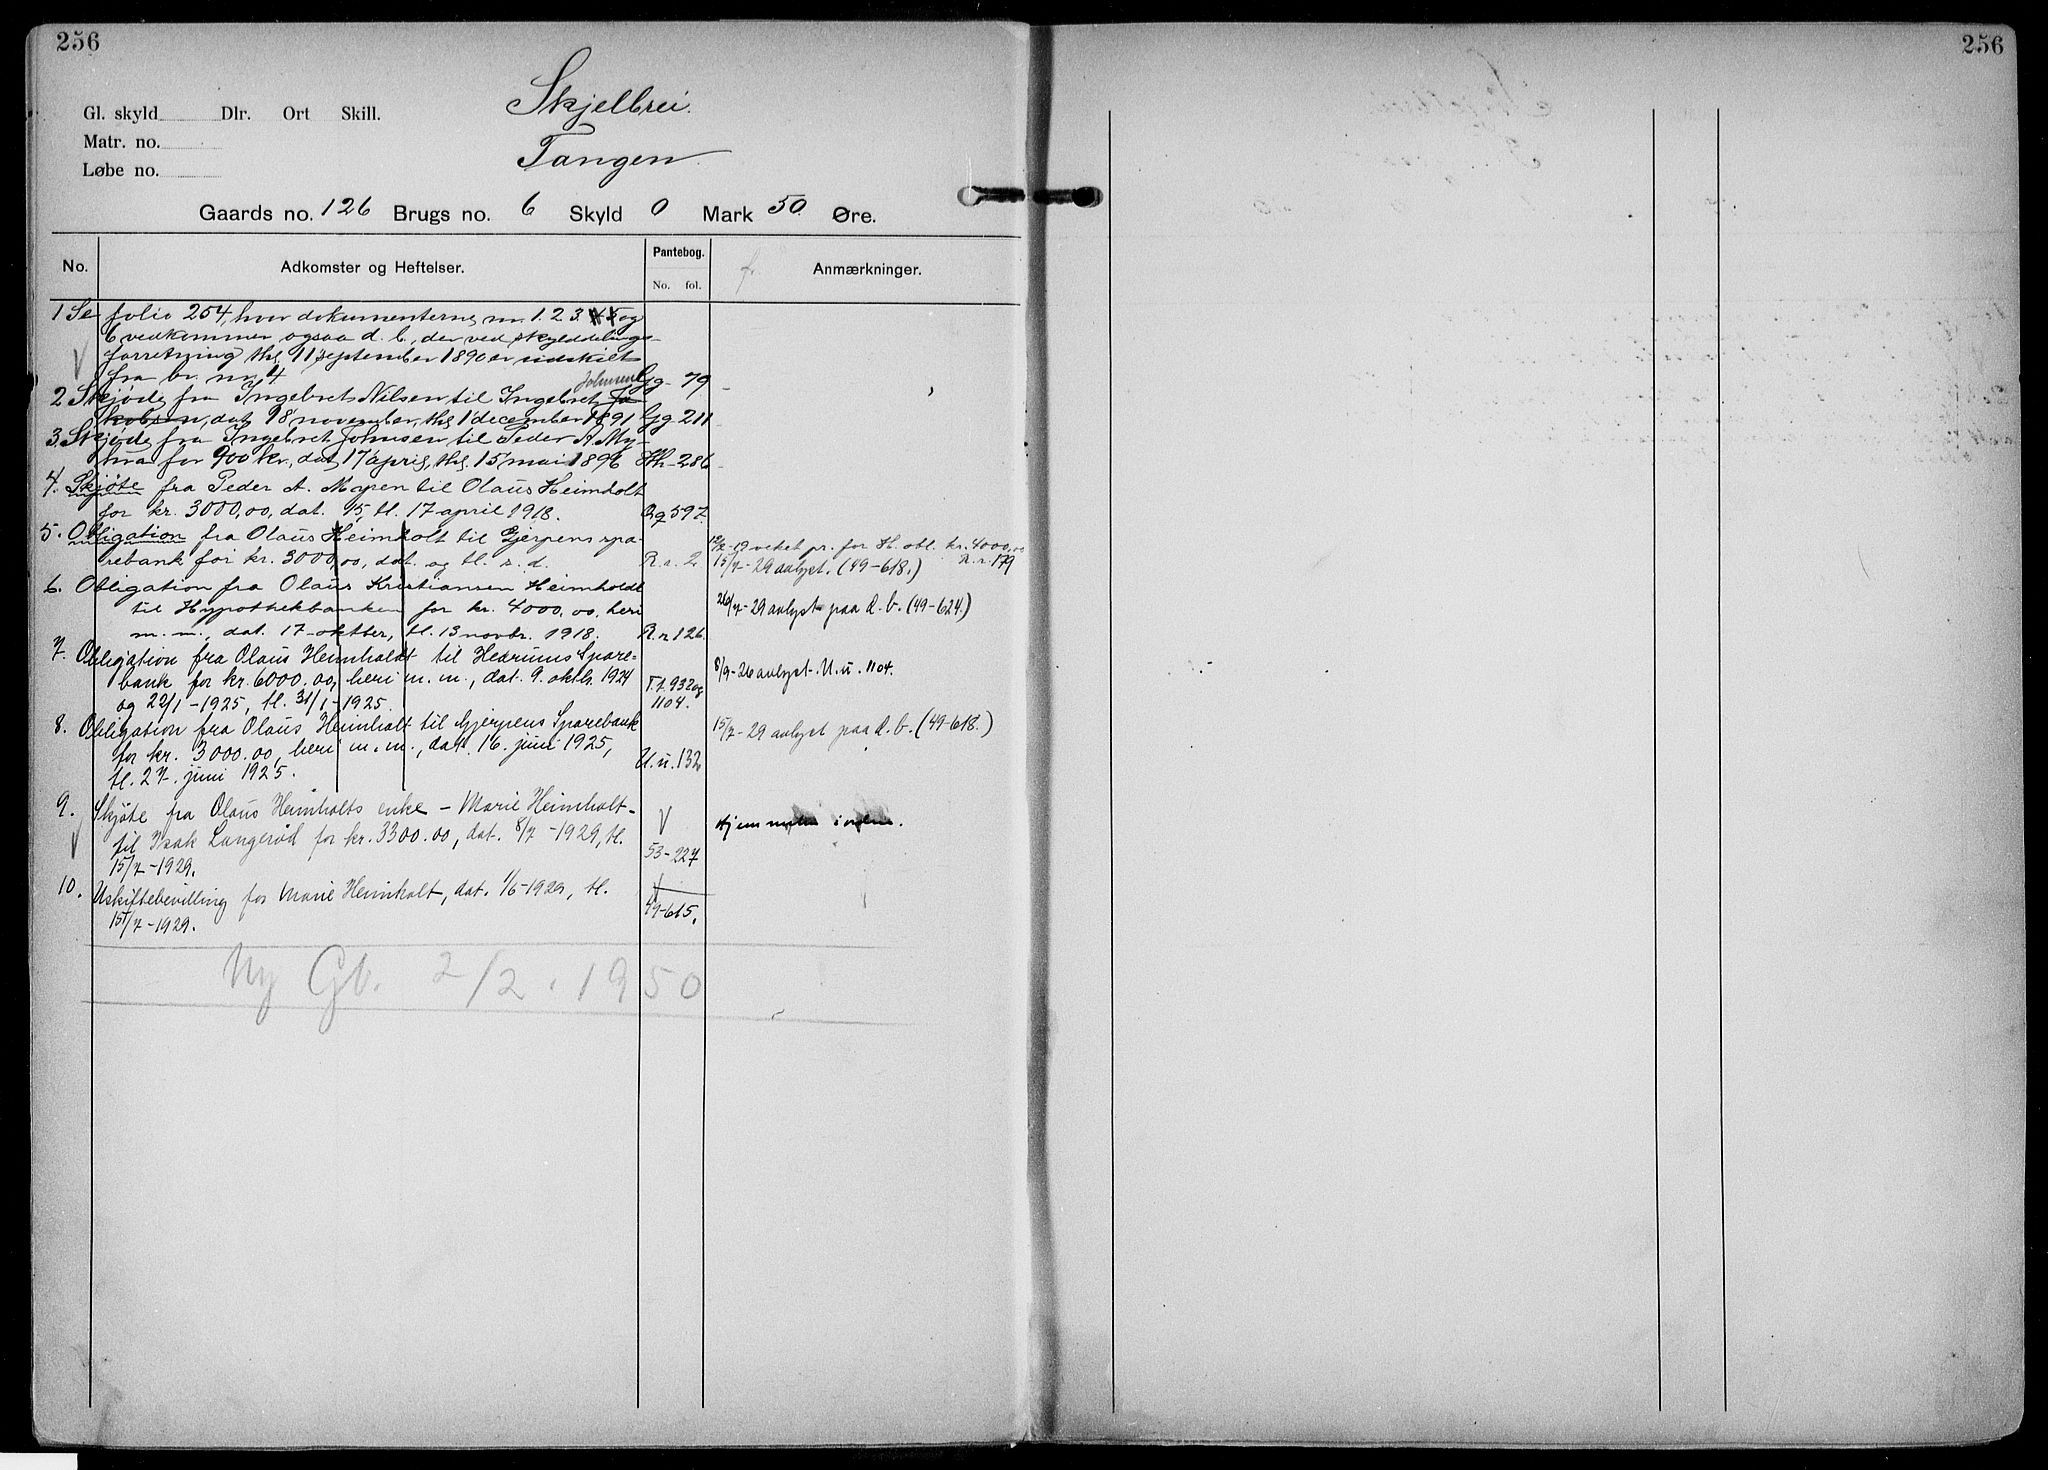 256
256
Skjelbrei.
Gl. skyld Dlr. Ort Skill.
Matr. no.
Tangen
Løbe no.
Gaards no. 126 Brugs no. 6 Skyld 0 Mark 50 Øre.
No. Adkomster og Heftelser. Pantebog. No. fol. Anmærkninger.
1 Se folio 254, hvor dokumenterne nr. 1. 2 3. 4 5 og
6 vedkommer ogsaa d. b., der ved skylddelings-
forretning thl. 11 september 1890 er udskilt
fra br. nr. 4 Gg- 79
2 Skjøde fra Ingebret Nilsen til Ingebret Ja Johnsen
kobsen, dat 18 november, thl. 1 december 1891 Gg- 211
3. Skjøde fra Ingebret Johnsen til Peder A. My-
hra for 900 kr., dat 17 april, thl. 15 mai 1896 Hh- 286
4. Skjøte fra Peder A. Myren til Olaus Heimholt
for kr. 3000,00, dat. 15, tl. 17 april 1918. Qq 597.
5. Obligation fra Olaus Heimholt til Gjerpens spa-
rebank for kr. 3000,00, dat. og tl. s. d. R. r. 2
12/2-19 veket pr. for H. obl. kr. 4000,00
R. r. 179
15/7-29 avlyst. (49-618.)
6. Obligation fra Olaus Kristiansen Heimholdt
til Hypothekbanken for kr. 4000,00, heri
m. m., dat. 17-oktber, tl. 13 novbr. 1918. R. r 126.
26/7-29 avlyst paa d. b. (49-624.)
7. Obligation fra Olaus Heimholdt til Hedrums Spare-
bank for kr. 6000.00, heri m. m., dat. 9. oktb. 1924
og 22/1-1925, tl. 31/1-1925. T. t. 932 og 1104.
8/9-26 avlyst. U. u. 1104.
8. Obligation fra Olaus Heimholt til Gjerpens Sparebank
for kr. 3000.00, heri m. m., dat. 16. juni 1925,
tl. 27. juni 1925. U. u. 132
15/7-29 avlyst paa d. b. (49-618.)
9. Skjøte fra Olaus Heimholts enke - Marie Heimholt-
til Isak Langerød for kr. 3300.00, dat. 8/7-1929, tl.
15/7-1929. 53-227
Hjemmelen i orden.
10. Uskiftebevilling for Marie Heimholt, dat. 1/6-1929, tl.
15/7-1929. 49-615.
Ny Gb. 2/2. 1950